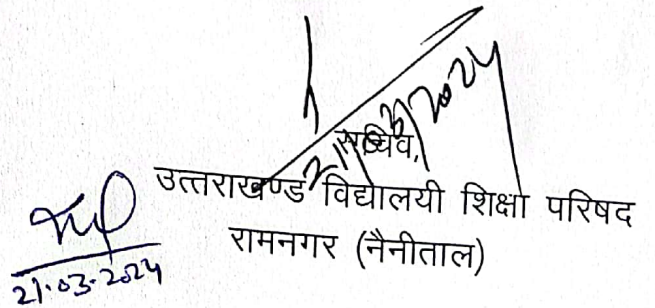 21/03/2024
सचिव,
उत्तराखण्ड विद्यालयी शिक्षा परिषद
रामनगर (नैनीताल)
21.03.2024